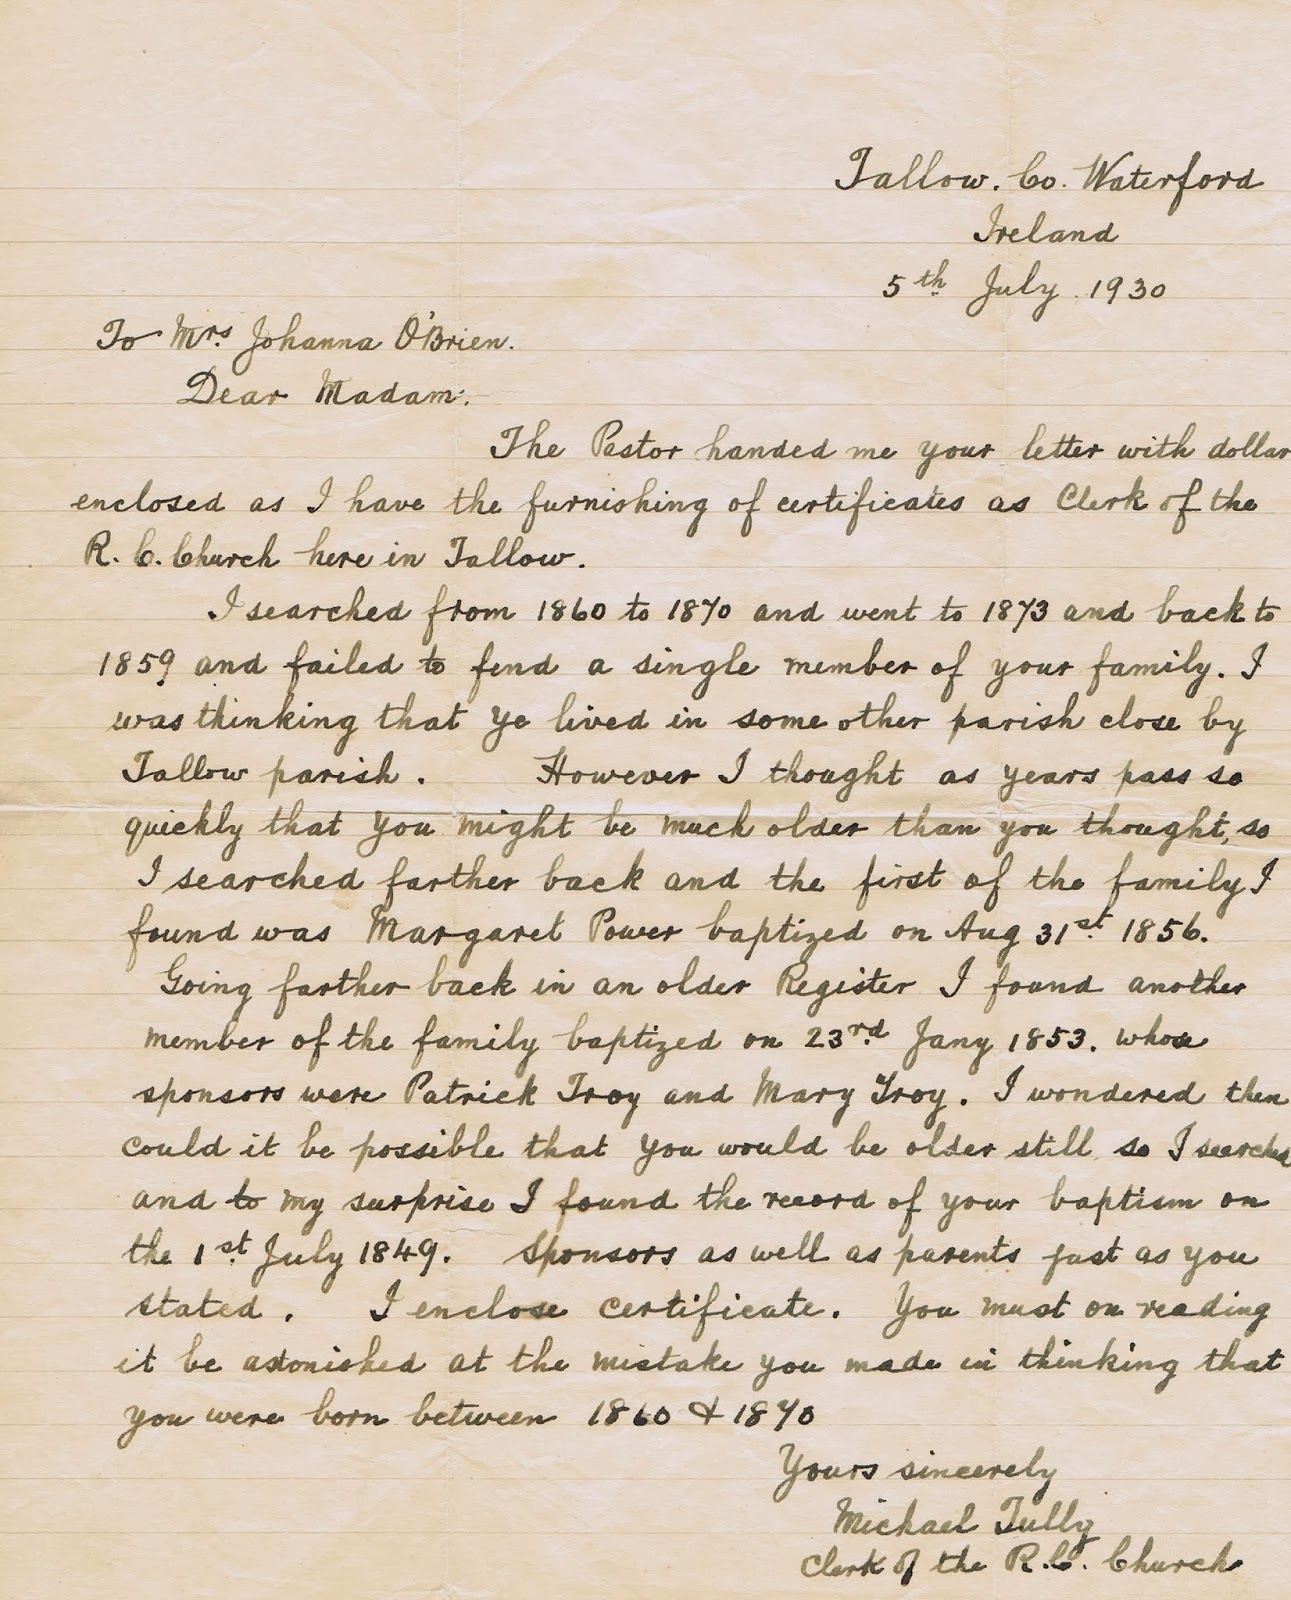 Tallow. Co. Waterford
Ireland
5th July 1930
To Mrs. Johanna O'Brien.
Dear Madam:
The Pastor handed me your letter with dollar
enclosed as I have the furnishing of certificates as Clerk of the
R. C. Church here in Tallow.
I searched from 1860 to 1870 and went to 1873 and back to
1859 and failed to find a single member of your family. I
was thinking that ye lived in some other parish close by
Tallow parish. However I thought as years pass so
quickly that you might be much older than you thought, so
I searched farther back and the first of the family I
found was Margaret Power baptized on Aug 31st 1856.
Going farther back in an older Register I found another
member of the family baptized on 23rd Jany 1853. whose
sponsors were Patrick Troy and Mary Troy. I wondered then
could it be possible that you would be older still so I searched
and to my surprise I found the record of your baptism on
the 1st July 1849. Sponsors as well as parents just as you
stated. I enclose certificate. You must on reading
it be astonished at the mistake you made in thinking that
you were born between 1860 & 1870
Yours sincerely
Michael Tully
Clerk of the R.C. Church